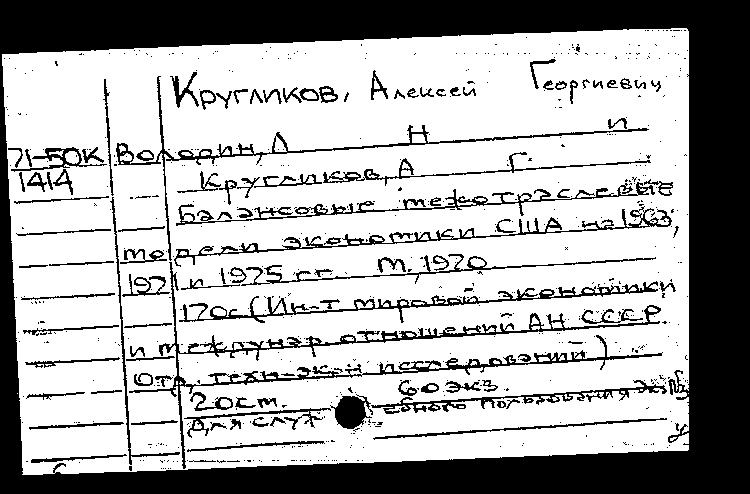 Кругликов, Алексей Георгиевич
71-50К Володин, Л Н и
1414 Кругликов, А Г.
Балансовые межотраслевые
модели экономики США на 1963,
1971 и 1975 гг. М., 1970
170с (Ин-т мировой экономики
и междунар. отношений АН СССР.
Отр. техн-экон исследований)
20см. 60 экз.
Для служебного пользования Экз